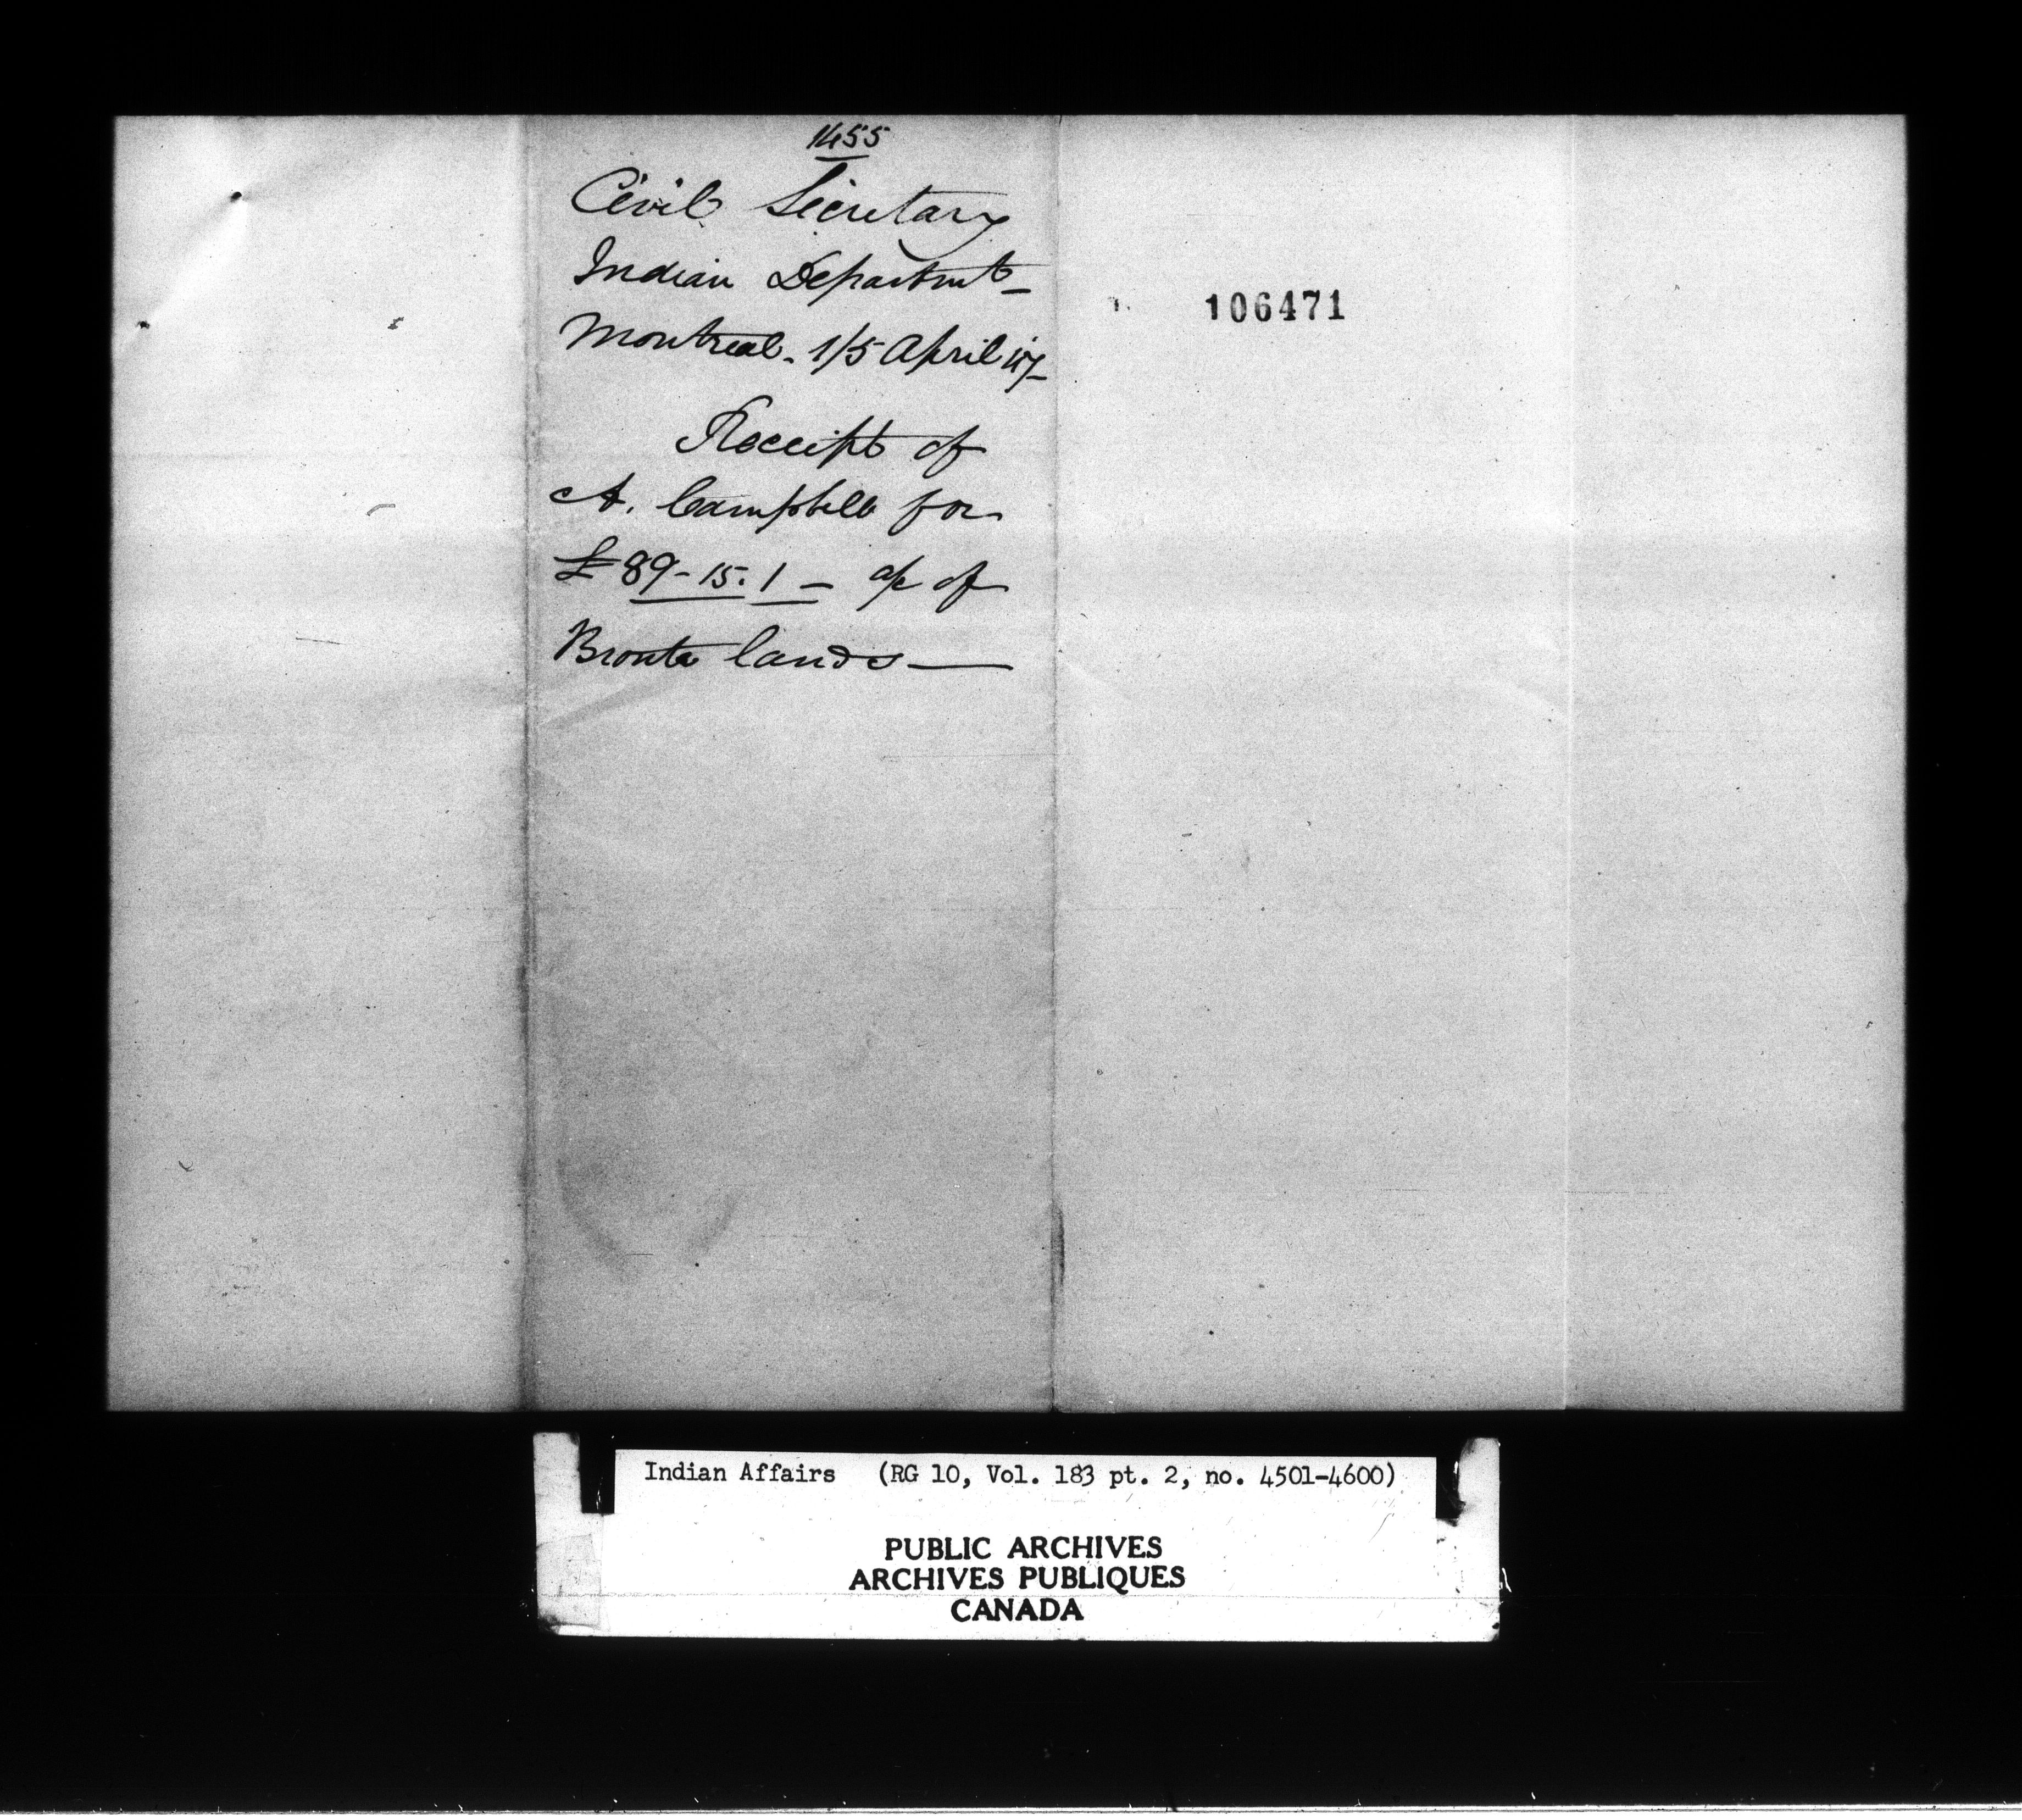 1455
Civil Secretary
Indian Departmt
Montreal. 1/5 April 47
Receipt of
A. Campbell for
£89-15.1 - a/c of
Bronte lands
106471
Indian Affairs (RG 10, Vol. 183 pt. 2, no. 4501-4600)
PUBLIC ARCHIVES
ARCHIVES PUBLIQUES
CANADA